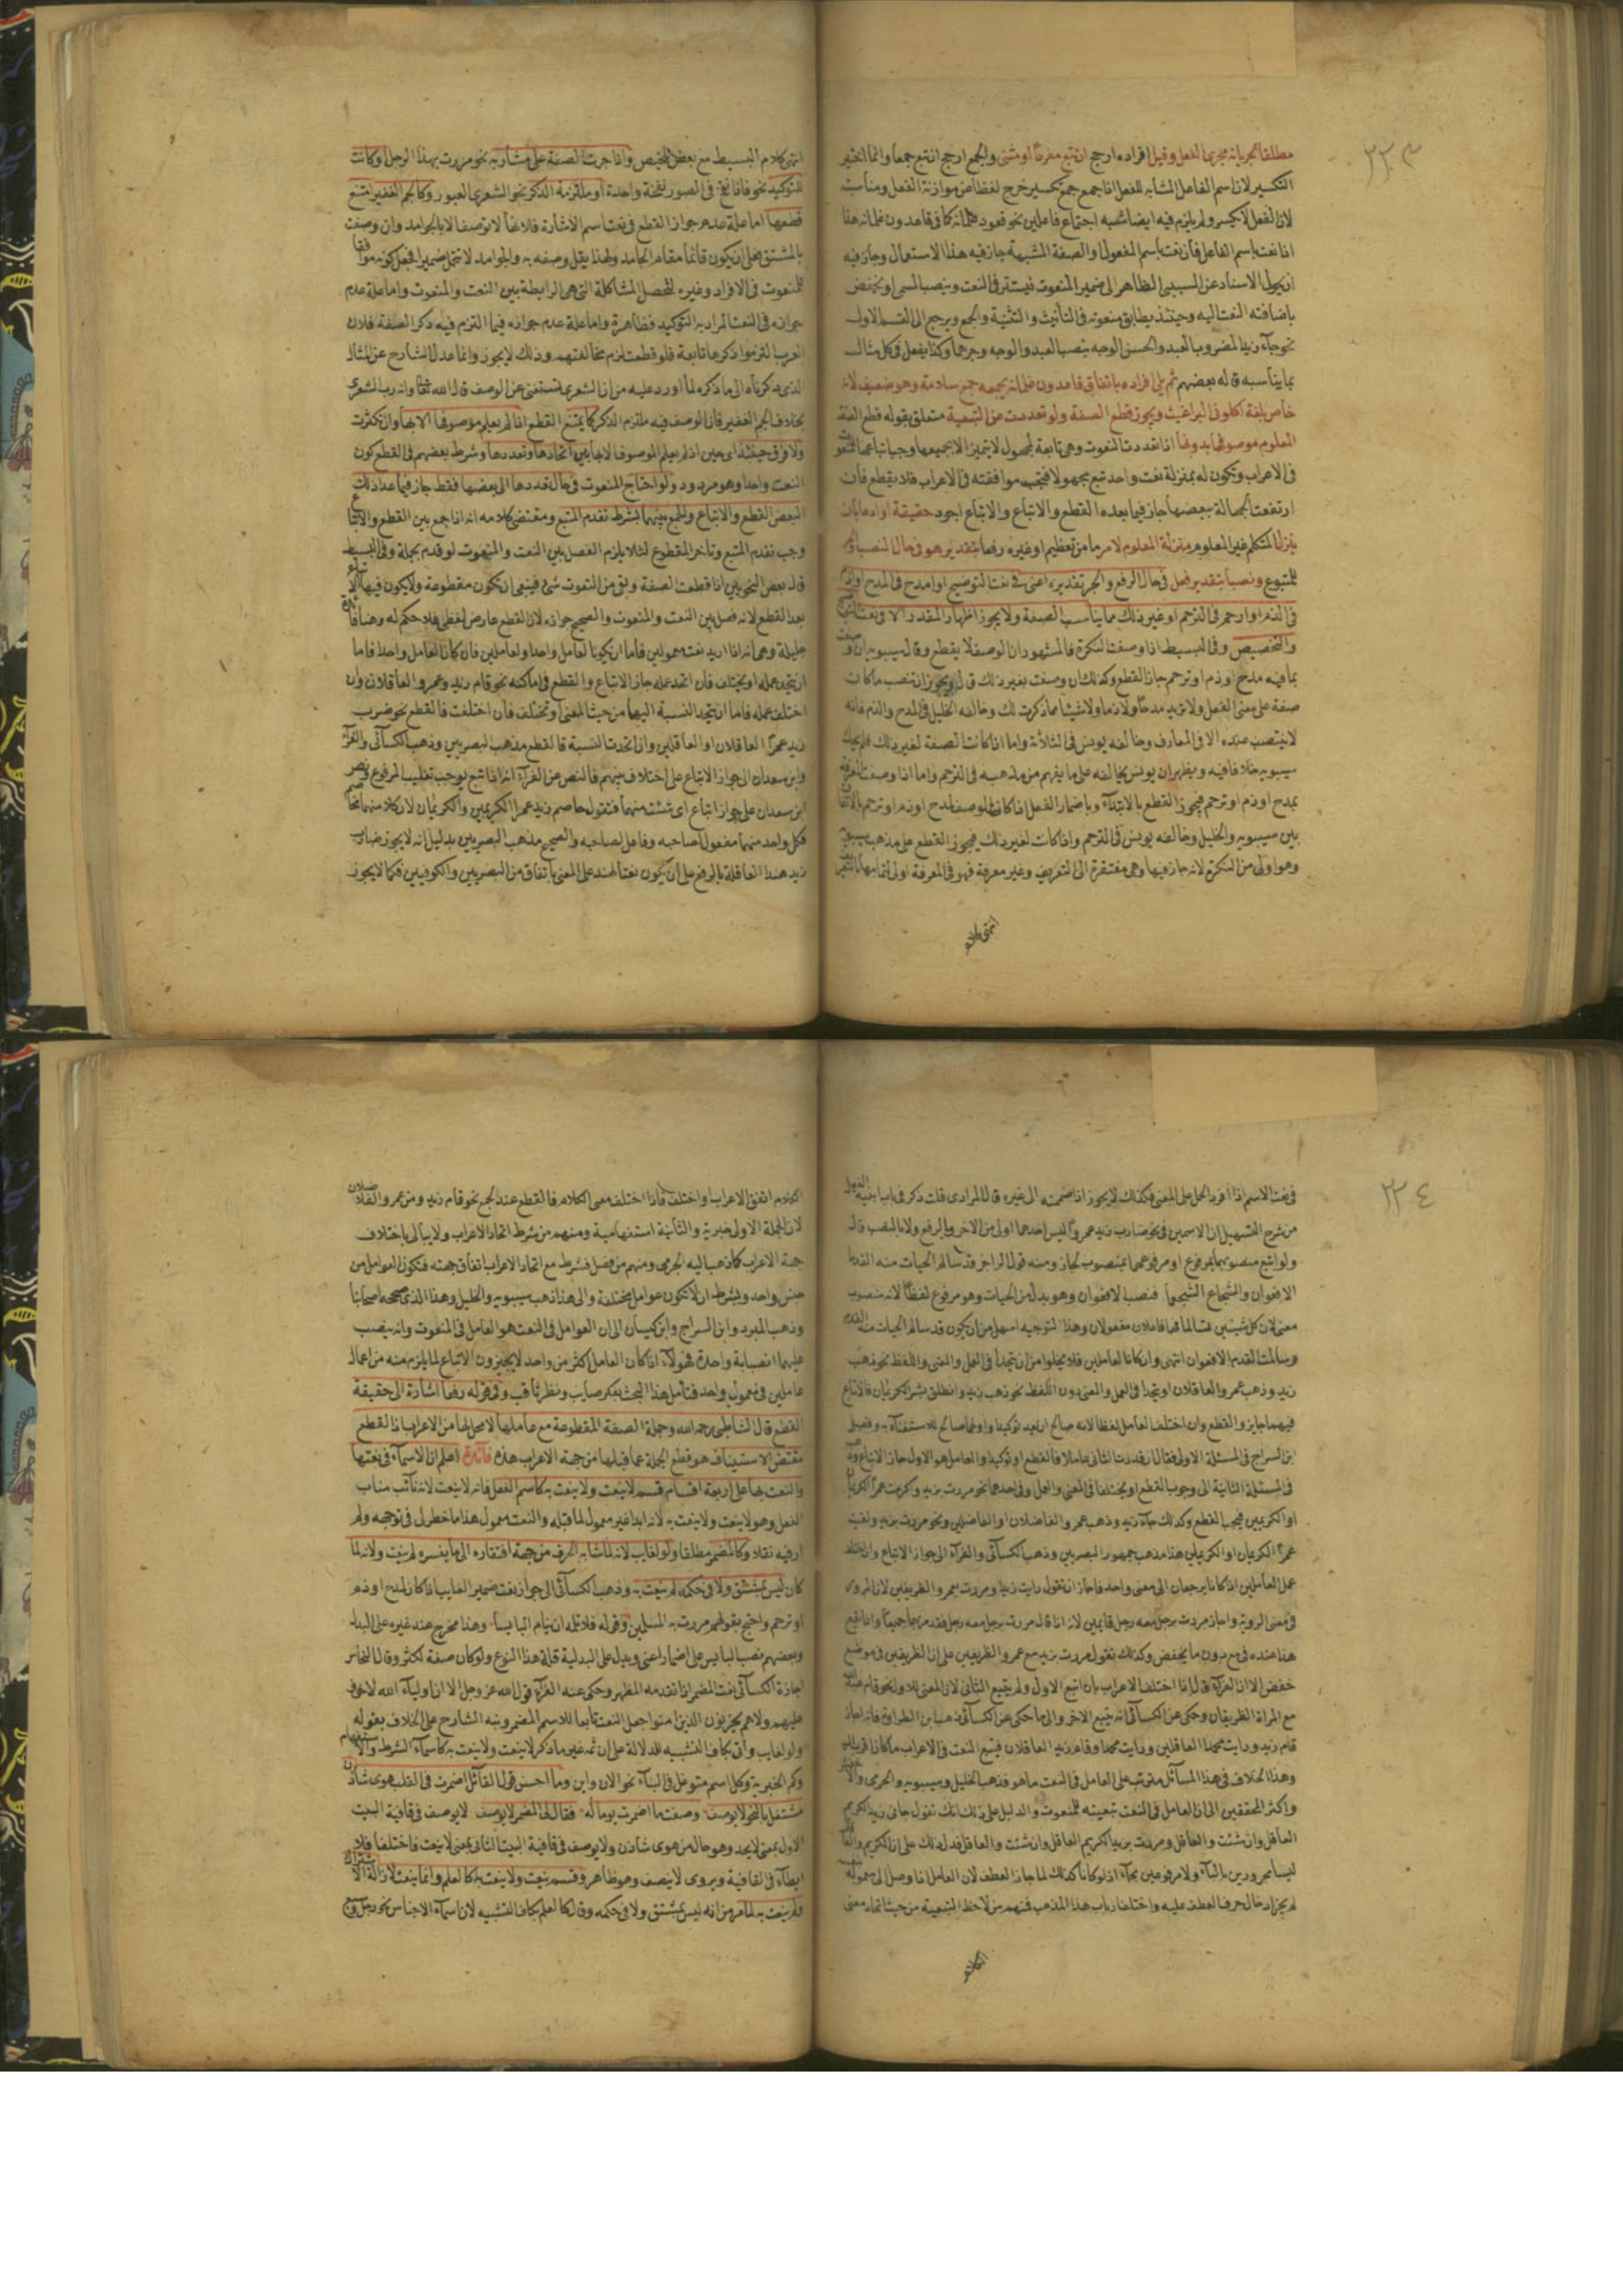 ٣٣٣
مطلقا لجريانه مجرى الفعل وقيل افراده ارجح ان تبع مفردا او مثنى والجمع ارجح ان تبع جمعا وانما اختير
التكسير لان اسم الفاعل المشابه للفعل اذا جمع جمع تكسير خرج لفظا عن موازنة الفعل ومناسبته
لان الفعل لا يكسر ولم يلزم فيه ايضا شبه اجتماع فاعلين نحو قعود غلمانه كما في قاعدون غلمانه هذا
اذا نعت باسم الفاعل فان نعت باسم المفعول والصفة المشبهة جاز فيه هذا الاستعمال وجاز فيه
ان يحول الاسناد عن السببي الظاهر الى ضمير المنعوت فيستتر في النعت وينصب السببي او يخفض
باضافته النعت اليه وحينئذ يطابق منعوته في التأنيث والتثنية والجمع ويرجع الى القسم الاول
نحو جاء زيد المضروب العبد والحسن الوجه بنصب العبد والوجه وجرهما وكذا يفعل في كل مثال
بما يناسبه قاله بعضهم ثم يلي افراده باتفاق قاعدون غلمانه بجمعه جمع سلامة وهو ضعيف لانه
خاص بلغة اكلوني البراغيث ويجوز قطع الصفة ولو تعددت عن التبعية متعلق بقوله قطع الصفة
المعلوم موصوفها بدونها اذا تعددت النعوت وهي تابعة لمجهول لا يتميز الا بجميعها وجب اتباعها
في الاعراب وتكون له بمنزلة نعت واحد تبع مجهولا فيجب موافقته في الاعراب فلا يقطع فان
ارتفعت الجهالة ببعضها جاز فيما بعده القطع والاتباع والاتباع اجود حقيقة او ادعاء بان
ينزل المتكلم غير المعلوم منزلة المعلوم لامر ما من تعظيم او غيره رفعا بتقدير هو في حال النصب
للمتبوع ونصبا بتقدير فعل في حال الرفع والجر تقديره اعني في نعت التوضيح او امدح في المدح
في الذم او ارحم في الترحم او غير ذلك مما يناسب الصفة ولا يجوز اظهار المقدر الا في نعت
والتخصيص وفي البسيط اذا وصفت النكرة فالمشهور ان الوصف لا يقطع وقال سيبويه ان
بما فيه مدح او ذم او ترحم جاز القطع وكذلك ان وصفت بغير ذلك قال ويجوز ان تنصب ما كان
صفة على معنى الفعل ولا تريد مدحا ولا ذما ولا شيئا مما ذكرت لك وخالفه الخليل في المدح والذم فانه
لا ينتصب عنده الا في المعارف وخالفه يونس في الثلاثة واما اذا كانت الصفة لغير ذلك
سيبويه خلافا فيه ويظهر ان يونس يخالفه على ما يفهم من مذهبه في الترحم واما اذا وصفت
بمدح او ذم او ترحم فيجوز القطع بالابتداء وباضمار الفعل اذا كان الوصف لمدح او ذم او ترحم
بين سيبويه والخليل وخالفه يونس في الترحم واذا كانت لغير ذلك فيجوز القطع على مذهب سيبويه
وهو اولى من النكرة لانه جاز فيها وهي مفتقرة الى التعريف وغير معرفة فهو في المعرفة اولى
انتهى كلام البسيط مع بعض تلخيص واذا جرت الصفة على مشار به نحو مررت بهذا الرجل او كانت
للتوكيد نحو فاذا نفخ في الصور نفخة واحدة او ملتزمة الذكر نحو الشعرى العبور وكالجم الغفير امتنع
قطعها اما علة عدم جواز القطع في نعت اسم الاشارة فلانها لا توصف الا بالجوامد وان وصفت
بالمشتق فعلى ان يكون قائما مقام الجامد ولهذا يقل وصفه به والجوامد لا تتحمل ضميرا فجعل كونه موافقا
للمنعوت في الافراد وغيره لتحصل المشاكلة التي هي الرابطة بين النعت والمنعوت واما علة عدم
جوازه في النعت المراد به التوكيد فظاهرة واما علة عدم جوازه فيما التزم فيه ذكر الصفة فلان
العرب التزموا ذكرها تابعة فلو قطعت لزم مخالفتهم وذلك لا يجوز وانما عدل الشارح عن المثال
الذي ذكرناه الى ما ذكره لما اورد عليه من ان الشعرى تستغني عن الوصف قال الله تعالى وانه رب الشعرى
بخلاف الجم الغفير فان الوصف فيه ملتزم الذكر كما يمتنع القطع اذا لم يعلم موصوفها الا بها وان تكثرت
ولا فرق حينئذ اي حين اذ لم يعلم الموصوف الا بها بين اتحادها وتعددها وشرط بعضهم في القطع كون
النعت واحدا وهو مردود ولو احتاج المنعوت في حال تعددها الى بعضها فقط جاز فيما عدا ذلك
البعض القطع والاتباع والجمع بينهما بشرط تقدم المتبع ومقتضى كلامه انه اذا جمع بين القطع والاتباع
وجب تقدم المتبع وتأخر المقطوع لئلا يلزم الفصل بين النعت والمنعوت لو قدم بجملة وفي البسيط
قال بعض النحويين اذا قطعت الصفة وبقي من النعوت شيء فينبغي ان تكون مقطوعة ولا يكون فيها اتباع
بعد القطع لانه فصل بين النعت والمنعوت والصحيح جوازه لان القطع عارض لفظي فلا حكم له وهنا فائدة
جليلة وهي انه اذا اريد نعت معمولين فاما ان يكونا لعامل واحد او لعاملين فان كانا لعامل واحد فاما
ان يتحد عمله او يختلف فان اتحد عمله جاز الاتباع والقطع في اماكنه نحو قام زيد وعمرو العاقلان وان
اختلف عمله فاما ان يتحد النسبة اليهما من حيث المعنى او تختلف فان اختلفت فالقطع نحو ضرب
زيد عمرا العاقلان او العاقلين وان اتحدت النسبة فالقطع مذهب البصريين وذهب الكسائي والفراء
وابن سعدان الى جواز الاتباع على اختلاف بينهم فالنص عن الفراء انه اذا تبع يوجب تغليب المرفوع ونص
ابن سعدان على جواز اتباع اي شئت منهما فتقول خاصم زيد عمرا الكريمين والكريمان لان كلا منهما مخاصم
فكل واحد منهما مفعول لصاحبه وفاعل لصاحبه والصحيح مذهب البصريين بدليل انه لا يجوز ضارب
زيد هندا العاقلة بالرفع على ان يكون نعتا لهند على المعنى باتفاق من البصريين والكوفيين فكما لا يجوز
٣٣٤
في نعت الاسم اذا افرد الحمل على المعنى فكذلك لا يجوز اذا ضممته الى غيره قال المرادي قلت ذكر في باب ابنية
من شرح التسهيل ان الاسمين في نحو ضارب زيد عمرا ليس احدهما اولى من الاخر بالرفع ولا بالنصب قال
ولو اتبع منصوبهما بمرفوع او مرفوعهما بمنصوب لجاز ومنه قول الراجز قد سالم الحيات منه القدما
الافعوان والشجاع الشجعما فنصب الافعوان وهو بدل من الحيات وهو مرفوع لفظا لانه منصوب
معنى لان كل شيئين تسالما فهما فاعلان مفعولان وهذا التوجيه اسهل من ان يكون قد سالم الحيات منه القدم
وسالمت القدم الافعوان انتهى وان كانا لعاملين فلا يخلوا من ان يتحدا في العمل والمعنى واللفظ نحو ذهب
زيد وذهب عمرو العاقلان او يتحدا في العمل والمعنى دون اللفظ نحو ذهب زيد وانطلق بشر الكريمان فالاتباع
فيهما جايز والقطع وان اختلف العامل لفظا لانه صالح ان يعد توكيدا واولهما صالح للاستغناء به وفصل
ابن السراج في المسئلة الاولى فقال ان قدرت الثاني عاملا فالقطع او توكيدا والعامل هو الاول جاز الاتباع
في المسئلة الثانية الى وجوب القطع او يختلفا في المعنى والعمل وفي احدهما نحو مررت بزيد واكرمت عمرا الكريمان
او الكريمين فيجب القطع وكذلك جاء زيد وذهب عمرو الفاضلان او الفاضلين ونحو مررت بزيد ولقيت
عمرا الكريمان او الكريمين هذا مذهب جمهور البصريين وذهب الكسائي والفراء الى جواز الاتباع وان اختلف
عمل العاملين اذا كانا يرجعان الى معنى واحد فاجاز ان تقول رايت زيدا ومررت بعمرو الظريفين لان المرور
في معنى الرؤية واجاز مررت برجل معه رجل قايمين لانه اذا قال مررت برجل معه رجل فقد مر بهما جميعا
هذا عنده في مع دون ما يخفض وكذلك تقول مررت بزيد مع عمرو الظريفين على ان الظريفين في موضع
خفض الا ان الفراء قال اذا اختلف الاعراب بان اتبع الاول ولم يتبع الثاني لان المعنى للاول نحو قام عبد الله
مع المراة الظريفان وحكى عن الكسائي انه يتبع الاخر والى ما حكي عن الكسائي ذهب ابن الطراوة فانه اجاز
قام زيد ورايت محمدا العاقلين ورايت محمدا وقام زيد العاقلان فيتبع النعت في الاعراب ما كان اقرب اليه
وهذا الخلاف في هذا المسائل مترتب على العامل في النعت ما هو فذهب الخليل وسيبويه والجرمي والاخفش
واكثر المحققين الى ان العامل في النعت تبعيته للمنعوت والدليل على ذلك انك تقول جاني زيد الكريم
العاقل وان شئت والعاقل ومررت بزيد الكريم العاقل وان شئت والعاقل فدل ذلك على ان الكريم والعاقل
ليسا مجرورين بالباء ولا مرفوعين بجاء اذ لو كانا كذلك لما جاز العطف لان العامل اذا وصل الى معموله
لم يجز ادخال حرف العطف عليه واختلف ارباب هذا المذهب فمنهم من لاحظ التبعية من حيث اتحاد معنى
الكلام
الكلام اتفق الاعراب او اختلف فاذا اختلف معنى الكلام فالقطع عند الجميع نحو قام زيد ومن عمرو الفاضلان
لان الجملة الاولى خبرية والثانية استفهامية ومنهم من شرط اتحاد الاعراب ولا يبالي باختلاف
جهة الاعراب كما ذهب اليه الجرمي ومنهم من فصل فشرط مع اتحاد الاعراب اتفاق جهته فتكون العوامل من
جنس واحد ويشترط ان لا تكون عوامل مختلفة والى هذا ذهب سيبويه والخليل وهذا الذي صححه اصحابنا
وذهب المبرد وابن السراج وابن كيسان الى ان العوامل في النعت هو العامل في المنعوت وانه ينصب
عليهما انصبابة واحدة فهؤلاء اذا كان العامل اكثر من واحد لا يجيزون الاتباع لما يلزم منه من اعمال
عاملين في معمول واحد فتأمل هذا البحث بفكر صايب ونظر ثاقب وفي قوله رفعا اشارة الى حقيقة
القطع قال الشاطبي رحمه الله وجملة الصفة المقطوعة مع عاملها لا محل لها من الاعراب اذ القطع
مقتض الاستيناف هو قطع الجملة عما قبلها من جهة الاعراب هذه فائدة اعلم ان الاسماء في نعتها
والنعت بها على اربعة اقسام قسم لا ينعت ولا ينعت به كاسم الفعل فانه لا ينعت لانه نائب مناب
الفعل وهو لا ينعت ولا ينعت به لانه ابدا غير معمول لما قبله والنعت معمول هذا ما خطر لي في توجيهه ولم
ار فيه نقلا وكالمضمر مطلقا ولو لغايب لانه لما شابه الحرف من جهة افتقاره الى ما يفسره لم ينعت ولانه لما
كان ليس بمشتق ولا في حكمه لم ينعت به وذهب الكسائي الى جواز نعت ضمير الغايب اذا كان لمدح او ذم
او ترحم واحتج بقولهم مررت به المسكين وقوله فلا تلمه ان ينام البائسا وهذا مخرج عند غيره على البدل
وبعضهم نصب البايس على اضمار اعني ويدل على البدلية قلة هذا النوع ولو كان صفة لكثر وقال النحاس
اجازة الكسائي نعت المضمر اذا تقدمه المظهر وحكى عنه الفراء قول الله عز وجل الا ان اولياء الله لا خوف
عليهم ولا هم يحزنون الذين امنوا جعل النعت تابعا للاسم المضمر ونبه الشارح على الخلاف بقوله
ولو لغايب واتى بكاف التشبيه للدلالة على ان ثم غير ما ذكر لا ينعت ولا ينعت به كاسماء الشرط والاستفهام
وكم الخبرية وكل اسم متوغل في البناء نحو الان واين وما احسن قول القائل اضمرت في القلب هوى شادن
مشتغل بالنحو لا يوصف وصفت ما اضمرت يوما له فقال لي المضمر لا يوصف لا يوصف في قافية البيت
الاول بمعنى لا يحد وهو حال من هوى شادن ولا يوصف في قافية البيت الثاني بمعنى لا ينعت فاختلفا فلا
ايطاء في القافية ويروى لا ينصف وهو ظاهر وقسم ينعت ولا ينعت به كالعلم وانما ينعت لازالة الاشتراك
ولم ينعت به لما مر من انه ليس بمشتق ولا في حكمه وقال كالعلم بكاف التشبيه لان اسماء الاجناس نحو رجل